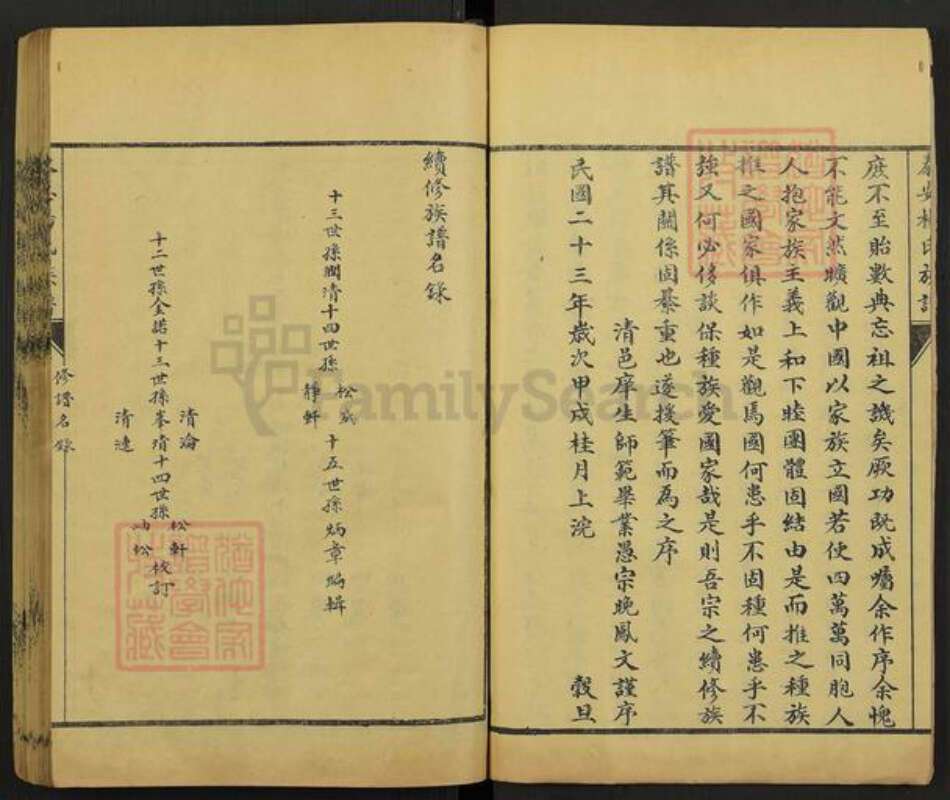 庶不至貽數典忘祖之譏矣厥功既成囑余作序余愧
不能文然曠觀中國以家族立國若使四萬萬同胞人
人抱家族主義上和下睦團體固結由是而推之種族
推之國家俱作如是觀焉國何患乎不固種何患乎不
強又何必侈談保種族愛國家哉是則吾宗之續修族
譜其關係固綦重也遂援筆而為之序
清邑庠生師範畢業愚宗晚鳳文謹序
民國二十三年歲次甲戌桂月上浣 穀旦
續修族譜名錄
十三世孫潤清十四世孫
松
靜軒
十五世孫炳章編輯
清淪
十二世孫金諾十三世孫峯清十四世孫
清漣
松軒
松
校訂
修譜名錄
FamilySearch